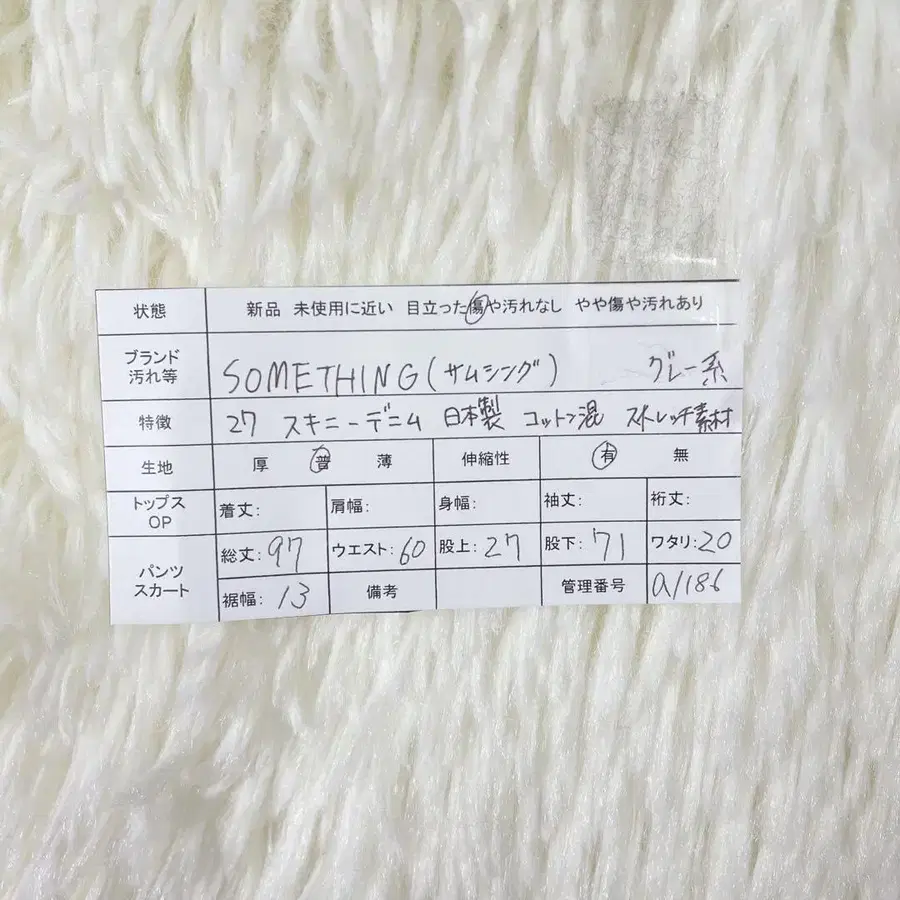 状態 新品 未使用に近い 目立った傷や汚れなし やや傷や汚れあり
ブランド 汚れ等 SOMETHING(サムシング) グレー系
特徴 27 スキニーデニム 日本製 コットン混 ストレッチ素材
生地 厚 普 薄 伸縮性 有 無
トップス OP 着丈: 肩幅: 身幅: 袖丈: 裄丈:
パンツ スカート 総丈:97 ウエスト:60 股上:27 股下:71 ワタリ:20
裾幅:13 備考 管理番号 a1186